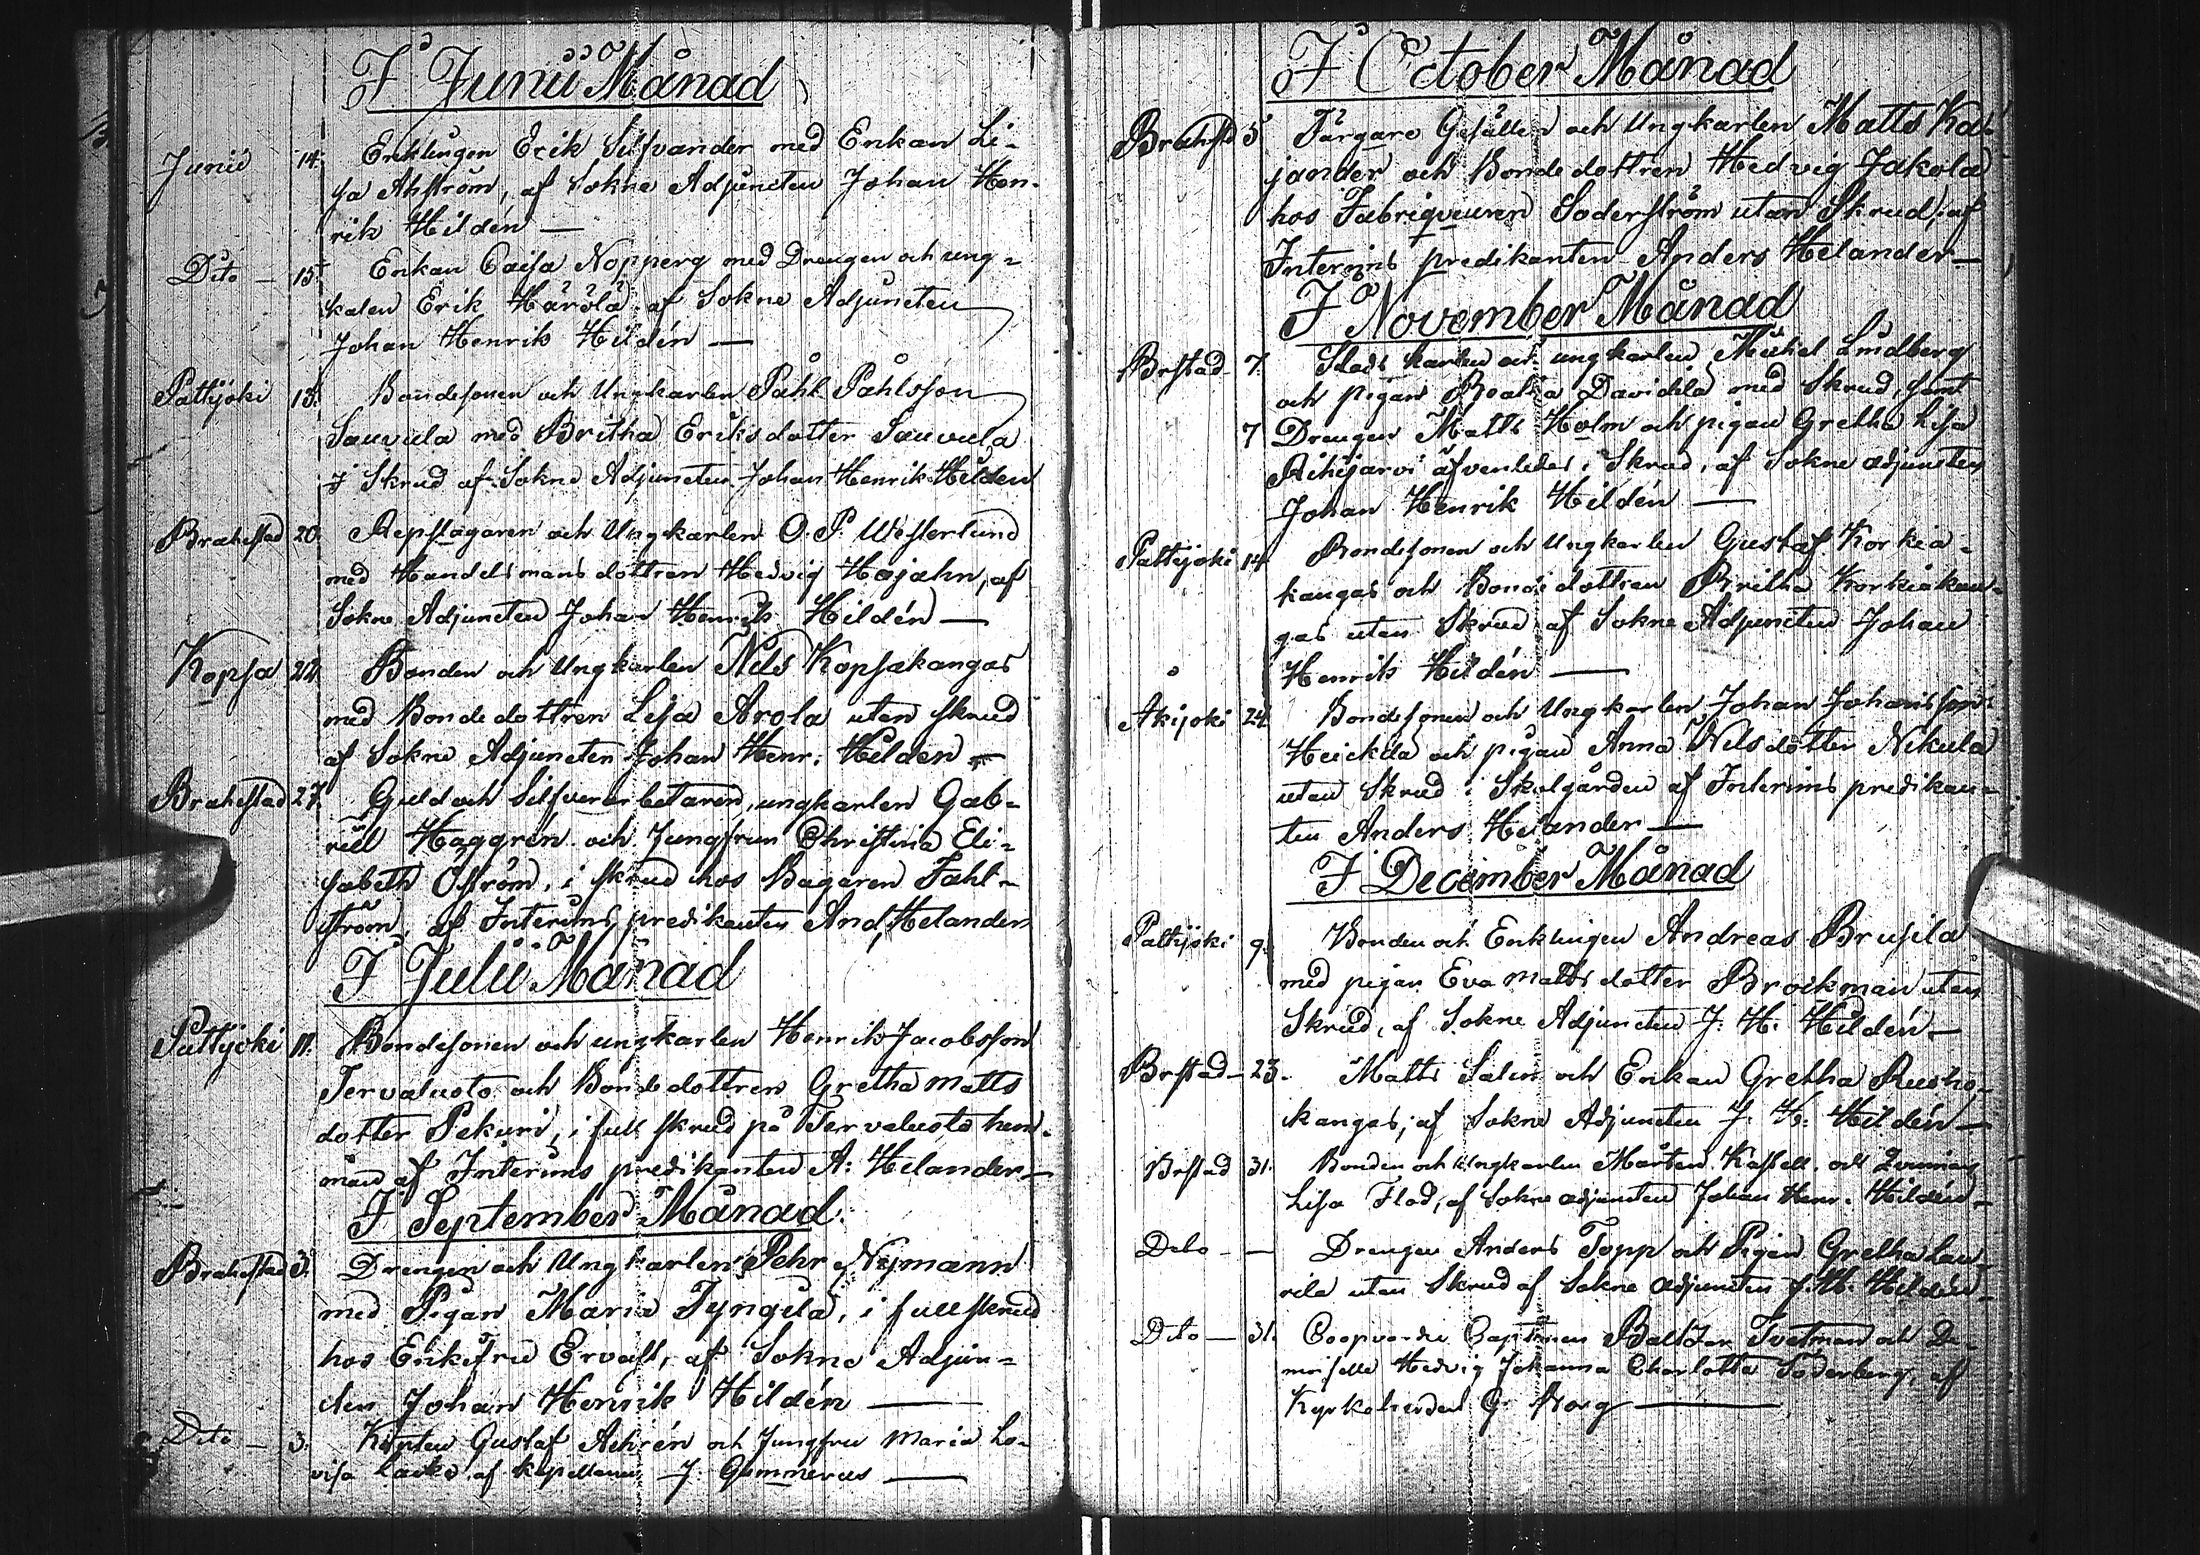 I Junii Månad
Junii 14. Enklingen Erik Silfvander med Enkan Li-
sa Ahström, af Sokne Adjuncten Johan Hen-
rik Hildén —
Dito — 15. Enkan Caisa Nopperg med Drengen och ung-
kalen Erik Härölä af Sokne Adjuncten
Johan Henrik Hildén —
Pattijoki 15. Bondesonen och Ungkarlen Påhl Påhlsson
Sauvula med Britha Eriksdotter Sauvula
I Skrud af Sokne Adjuncten Johan Henrik Hilden
Brahestad 20. Repslagaren och Ungkarlen O. P. Westerlund
med Handelsmans dottren Hedvig Hojahn, af
Sokne Adjuncten Johan Henrik Hildén —
Kopsa 22. Bonden och Ungkarlen Nils Kopsakangas
med Bonde dottren Lisa Arola utan skrud
af Sokne Adjuncten Johan Henr: Hilden —
Brahestad 27. Guld och Silfverarbetaren, ungkarlen Gab-
riel Haggrén och Jungfrun Christina Eli-
sabeth Öström, i skrud hos Bagaren Fahl-
ström, af Interims predikanten And, Helander
I Julii Månad
Pattijoki 11. Bondesonen och ungkarlen Henrik Jacobsson
Tervaluoto och Bonde dottren Gretha Matts
dotter Pekuri, i full skrud på Tervaluoto hem-
man af Interims predikanten A: Helander —
I September Månad.
Brahestad 3. Drengen och Ungkarlen Pehr Nymann
med Pigan Maria Tyngilä, i full skrud
hos Enkefru Ervast, af Sokne Adjun-
cten Johan Henrik Hildén —
Dito — 3. Kapten Gustaf Aehrén och Jungfru Maria Lo-
visa af Kapellanen J. Gummerus —
I October Månad
Brahestd 5 Färgare Gesällen och Ungkarlen Matts Ka-
jander och Bonde dottren Hedvig Jakola
hos Fabriqueuren Soderström utan Skrud, af
Interims predikanten Anders Helander —
I November Månad
Brstad 7. Stads karlen och ungkarlen Michel Lindberg
och pigan Davidila med Skrud, samt
7 Drengen Matts Holm och pigan Gretha Lisa
Rihijarvi äfvenledes i Skrud, af Sokne adjuncten
Johan Henrik Hildén —
Pattijoki 14. Bondesonen och Ungkarlen Gustaf Korkia-
kangas och Bonde dottren Britha Korkiakan-
gas utan Skrud af Sokne Adjuncten Johan
Henrik Hildén —
Akijoki 24. Bondesonen och Ungkarlen Johan Johansson
Heickla och pigan Anna Nils dotter Nikula
utan Skrud i Skolgården af Interims predikan-
ten Anders Helander —
I December Månad
Pattijoki 9. Bonden och Enklingen Andreas Brusila
med pigan Eva Matts dotter Brockman utan
Skrud, af Sokne Adjuncten J: H: Hildén —
Brstad — 23. Matts Salin och Enkan Gretha Rusko-
kangas, af Sokne Adjuncten J. H: Hildén —
Brstad 31. Bonden och Ungkarlen Mårten Kassell och
Lisa Flod, af Sokne adjuncten Johan Henr. Hildén —
Dito — — Drengen Anders Topp och Pigan Gretha Lau-
rila utan Skrud af Sokne Adjuncten J. H. Hildén —
Dito — 31. Coopvardie Captenen Baltzar Tvetman och De-
moiselle Hedvig Johanna Charlotta Söderberg, af
Kyrkoherden G. —